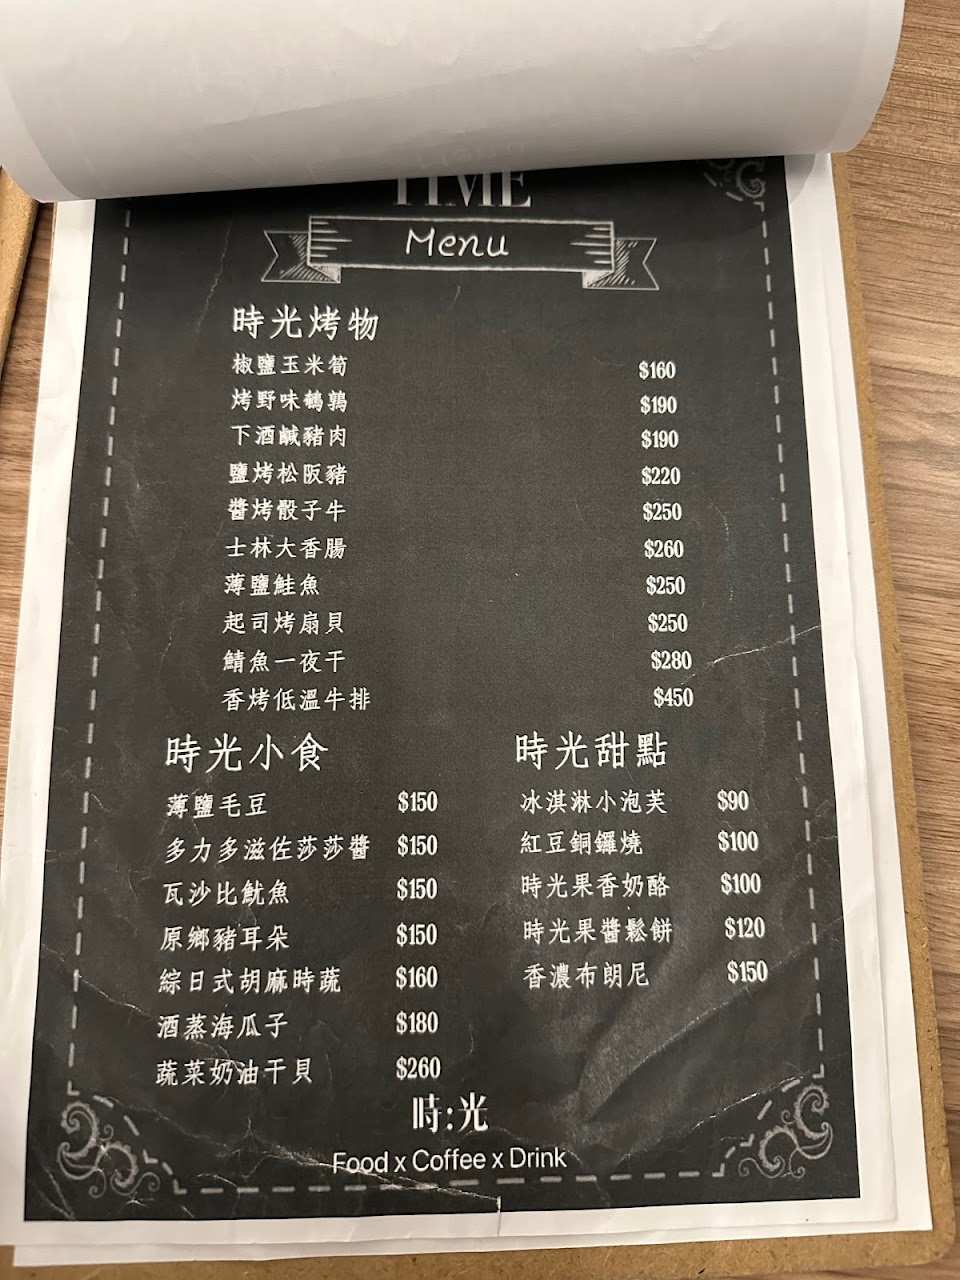 TIME
Menu
時光烤物
椒鹽玉米筍 $160
烤野味鵪鶉 $190
下酒鹹豬肉 $190
鹽烤松阪豬 $220
醬烤骰子牛 $250
士林大香腸 $260
薄鹽鮭魚 $250
起司烤扇貝 $250
鯖魚一夜干 $280
香烤低溫牛排 $450
時光小食
薄鹽毛豆 $150
多力多滋佐莎莎醬 $150
瓦沙比魷魚 $150
原鄉豬耳朵 $150
綜日式胡麻時蔬 $160
酒蒸海瓜子 $180
蔬菜奶油干貝 $260
時光甜點
冰淇淋小泡芙 $90
紅豆銅鑼燒 $100
時光果香奶酪 $100
時光果醬鬆餅 $120
香濃布朗尼 $150
時:光
Food x Coffee x Drink